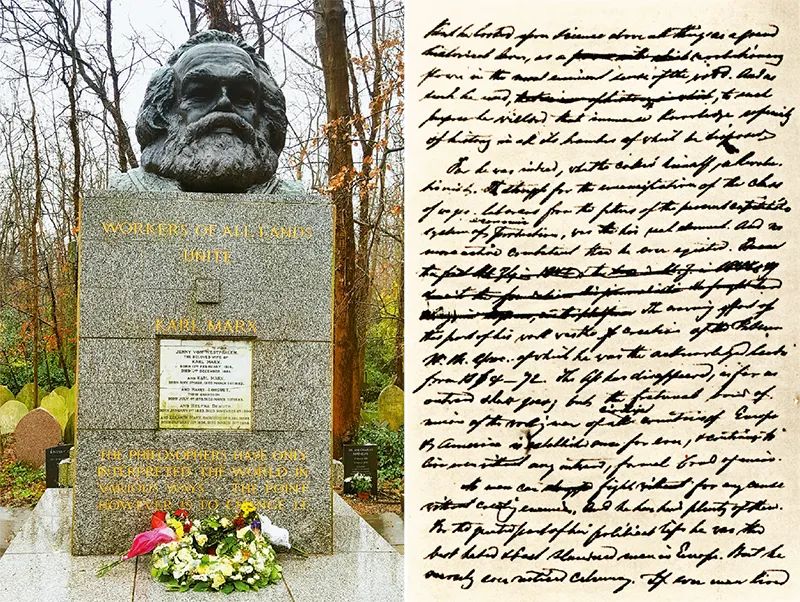 WORKERS OF ALL LANDS
UNITE
KARL MARX
JENNY VON WESTPHALEN,
THE BELOVED WIFE OF
KARL MARX.
BORN 12TH FEBRUARY
DIED 2ND DECEMBER 1881.
AND KARL MARX,
BORN MAY 5TH 1818, DIED MARCH 14TH 1883.
AND HARRY LONGUET,
THEIR GRANDSON,
BORN JULY DIED MARCH 20TH 1883.
AND HELENE DEMUTH,
BORN JANUARY 1ST 1823, DIED NOVEMBER 4TH 1890.
THE PHILOSOPHERS HAVE ONLY
INTERPRETED THE WORLD IN
VARIOUS WAYS · THE POINT
HOWEVER IS TO CHANGE IT
he looked upon science above all things as a grand
historical lever, as a revolutionary
power in the most eminent sense of the word. And as
such he used, to such
purpose he wielded that immense knowledge, especially
of history in all its branches of which he disposed.
For he was indeed, what he called himself, a Revolu-
tionist. The struggle for the emancipation of the class
of wages labourers from the fetters of the present capitalist
system of production, was his real element. And no
more active combatant than he ever existed.
the first
the crowning effort of
this part of his work was the creation of the
W. M. Assn. of which he was the acknowledged leader
from 1864–72. The has disappeared, as far as
outward show goes; but the fraternal bond of
union of the working men of all civilized countries of Europe
& America is established once for ever, & continues to
live even without any outward, formal bond of union.
No man can fight without for any cause
without creating enemies. And he has had plenty of them.
For the greater part of his political life he was the
best hated & best slandered man in Europe. But he
scarcely ever noticed calumny. If ever man lived